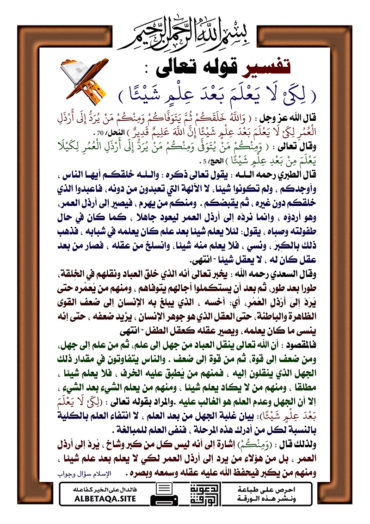 بسم الله الرحمن الرحيم
تفسير قوله تعالى :
( لِكَيْ لَا يَعْلَمَ بَعْدَ عِلْمٍ شَيْئًا )
قال الله عز وجل : ( وَاللَّهُ خَلَقَكُمْ ثُمَّ يَتَوَفَّاكُمْ وَمِنْكُمْ مَنْ يُرَدُّ إِلَى أَرْذَلِ
الْعُمُرِ لِكَيْ لَا يَعْلَمَ بَعْدَ عِلْمٍ شَيْئًا إِنَّ اللَّهَ عَلِيمٌ قَدِيرٌ ) النحل/ 70 .
وقال تعالى : ( وَمِنْكُمْ مَنْ يُتَوَفَّى وَمِنْكُمْ مَنْ يُرَدُّ إِلَى أَرْذَلِ الْعُمُرِ لِكَيْلَا
يَعْلَمَ مِنْ بَعْدِ عِلْمٍ شَيْئًا ) الحج/ 5 .
قال الطبري رحمه الله : يقول تعالى ذكره : والله خلقكم أيها الناس ،
وأوجدكم ، ولم تكونوا شيئا، لا الآلهة التي تعبدون من دونه، فاعبدوا الذي
خلقكم دون غيره ، ثم يقبضكم . ومنكم من يهرم ، فيصير إلى أرذل العمر،
وهو أردؤه ، وإنما نرده إلى أرذل العمر ليعود جاهلا ، كما كان في حال
طفولته وصباه ، يقول: لئلا يعلم شيئا بعد علم كان يعلمه في شبابه ، فذهب
ذلك بالكبر ، ونسي ، فلا يعلم منه شيئا، وانسلخ من عقله ، فصار من بعد
عقل كان له ، لا يعقل شيئا - انتهى.
وقال السعدي رحمه الله : يخبر تعالى أنه الذي خلق العباد ونقلهم في الخلقة،
طورا بعد طور، ثم بعد أن يستكملوا آجالهم يتوفاهم ، ومنهم من يُعمِّره حتى
يُرد إلى أرذل العمر، أي: أخسه ، الذي يبلغ به الإنسان إلى ضعف القوى
الظاهرة والباطنة، حتى العقل الذي هو جوهر الإنسان ، يزيد ضعفه ، حتى إنه
ينسى ما كان يعلمه، ويصير عقله كعقل الطفل - انتهى
فالمقصود : أن الله تعالى ينقل العباد من جهل إلى علم، ثم من علم إلى جهل،
ومن ضعف إلى قوة، ثم من قوة إلى ضعف . والناس يتفاوتون في مقدار ذلك
الجهل الذي ينقلون إليه ، فمنهم من يطبق عليه الخرف ، فلا يعلم شيئا ،
مطلقا ، ومنهم من لا يكاد يعلم شيئا ، ومنهم من يعلم الشيء بعد الشيء ،
إلا أن الجهل وعدم العلم هو الغالب عليه .والمراد بقوله تعالى : (لِكَيْ لَا يَعْلَمَ
بَعْدَ عِلْمٍ شَيْئًا): بيان غلبة الجهل من بعد العلم ، لا انتفاء العلم بالكلية
بالنسبة لكل من أدرك هذه المرحلة ، فنفى العلم للمبالغة .
ولذلك قال : (وَمِنْكُمْ) إشارة إلى أنه ليس كل من كبر وشاخ ، يُرد إلى أرذل
العمر ، بل من هؤلاء من يرد إلى أرذل العمر لكي لا يعلم بعد علم شيئا ،
ومنهم من يكبر فيحفظ الله عليه عقله وسمعه وبصره . الإسلام سؤال وجواب
احرص على طباعة
ونشر هذه الورقة
الورقة
الدعوية
فالدال على الخير كفاعله
ALBETAQA.SITE